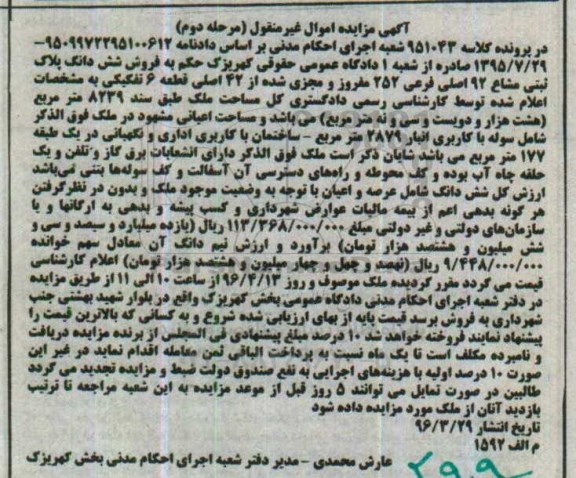 آگهی مزایده اموال غیرمنقول (مرحله دوم)
در پرونده کلاسه ۹۵۱۰۴۳ شعبه اجرای احکام مدنی بر اساس دادنامه ۹۵۰۹۹۷۲۲۹۵۱۰۰۶۱۲-
۱۳۹۵/۷/۲۹ صادره از شعبه ۱ دادگاه عمومی حقوقی کهریزک حکم به فروش شش دانگ پلاک
ثبتی مشاع ۹۲ اصلی فرعی ۲۵۲ مفروز و مجزی شده از ۴۲ اصلی قطعه ۶ تفکیکی به مشخصات
اعلام شده توسط کارشناسی رسمی دادگستری کل مساحت ملک طبق سند ۸۲۳۹ متر مربع
(هشت هزار و دویست و سی و نه متر مربع) می باشد و مساحت اعیانی مشهود در ملک فوق الذکر
شامل سوله با کاربری انبار ۲۸۷۹ متر مربع - ساختمان با کاربری اداری و نگهبانی در یک طبقه
۱۷۷ متر مربع می باشد شایان ذکر است ملک فوق الذکر دارای انشعابات برق گاز و تلفن و یک
حلقه چاه آب بوده و کف محوطه و راه‌های دسترسی آن آسفالت و کف سوله‌ها بتنی می‌باشد
ارزش کل شش دانگ شامل عرصه و اعیان با توجه به وضعیت موجود ملک و بدون در نظر گرفتن
هر گونه بدهی اعم از بیمه مالیات عوارض شهرداری و کسب پیشه و بدهی به ارگانها و یا
سازمان‌های دولتی و غیر دولتی مبلغ ۱۱۳/۳۶۸/۰۰۰/۰۰۰ ریال (یازده میلیارد و سیصد و سی و
شش میلیون و هشتصد هزار تومان) برآورد و ارزش نیم دانگ آن معادل سهم خوانده
۹/۴۴۸/۰۰۰/۰۰۰ ریال (نهصد و چهل و چهار میلیون و هشتصد هزار تومان) اعلام کارشناسی
قیمت می گردد مقرر گردیده ملک موصوف و روز ۹۶/۴/۱۳ از ساعت ۱۰ الی ۱۱ از طریق مزایده
در دفتر شعبه اجرای احکام مدنی دادگاه عمومی بخش کهریزک واقع در بلوار شهید بهشتی جنب
شهرداری به فروش برسد قیمت پایه از بهای ارزیابی شده شروع و به کسانی که بالاترین قیمت را
پیشنهاد نمایند فروخته خواهد شد ۱۰ درصد مبلغ پیشنهادی فی المجلس از برنده مزایده دریافت
و نامبرده مکلف است تا یک ماه نسبت به پرداخت الباقی ثمن معامله اقدام نماید در غیر این
صورت ۱۰ درصد اولیه با هزینه‌های اجرایی به نفع صندوق دولت ضبط و مزایده تجدید می گردد
طالبین در صورت تمایل می توانند ۵ روز قبل از موعد مزایده به این شعبه مراجعه تا ترتیب
بازدید آنان از ملک مورد مزایده داده شود
تاریخ انتشار ۹۶/۳/۲۹
م الف ۱۵۹۲
عارش محمدی - مدیر دفتر شعبه اجرای احکام مدنی بخش کهریزک
۲۹۹